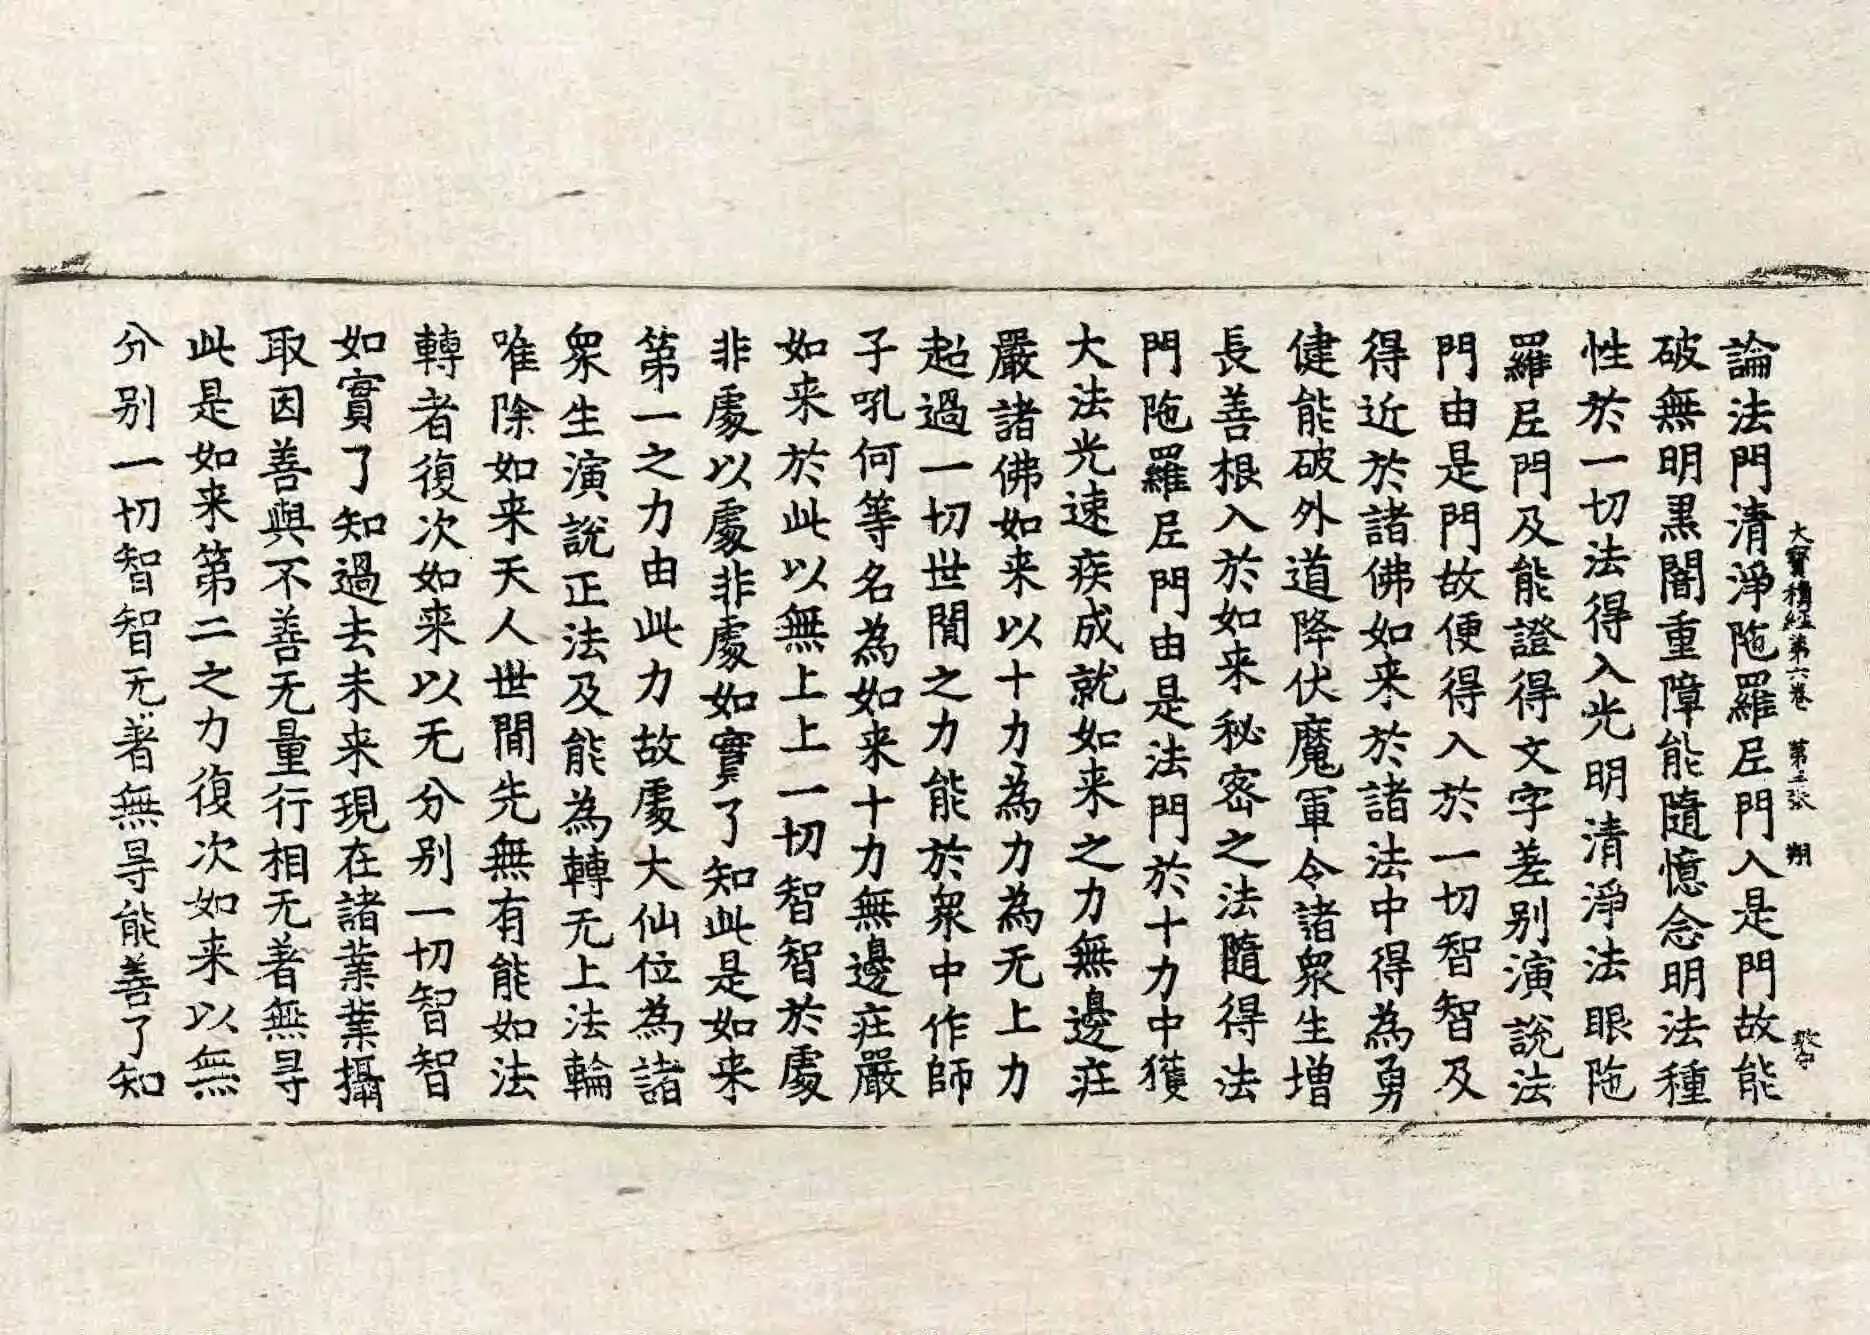 大寶積經第六卷 第三張 翔
論法門清淨陁羅尼門入是門故能
破無明黒闇重障能隨憶念明法種
性於一切法得入光明清淨法眼陁
羅尼門及能證得文字差别演說法
門由是門故便得入於一切智智及
得近於諸佛如来於諸法中得為勇
健能破外道降伏魔軍令諸衆生增
長善根入於如来秘密之法隨得法
門陁羅尼門由是法門於十力中獲
大法光速疾成就如来之力無邊莊
嚴諸佛如来以十力為力為无上力
起過一切世間之力能於衆中作師
子吼何等名為如来十力無邊莊嚴
如来於此以無上上一切智智於處
非處以處非處如實了知此是如来
第一之力由此力故處大仙位為諸
衆生演說正法及能為轉无上法輪
唯除如来天人世間先無有能如法
轉者復次如来以无分别一切智智
如實了知過去未来現在諸業業攝
取因善與不善无量行相无著無㝵
此是如来第二之力復次如来以無
分别一切智智无著無㝵能善了知